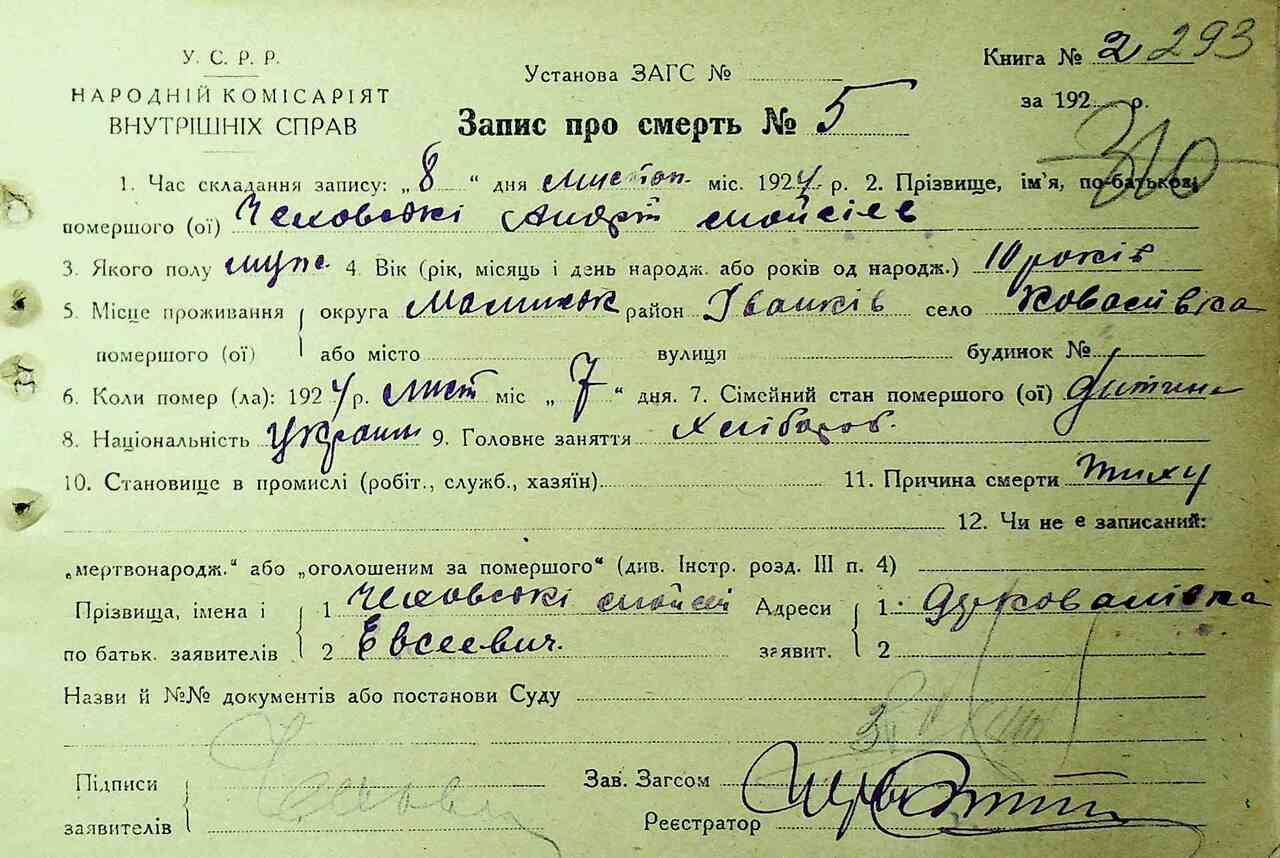 У. С. Р. Р.
НАРОДНІЙ КОМІСАРІЯТ
ВНУТРІШНІХ СПРАВ
Установа ЗАГС №
Запис про смерть № 5
Книга № 2 293
за 192 р.
310
1. Час складання запису: „ 8 “ дня листоп. міс. 1924 р. 2. Прізвище, ім'я, по-батькові
помершого (ої) Чеховські Андрій Мойсіев
3. Якого полу муж. 4. Вік (рік, місяць і день народж. або років од народж.) 10 років
5. Місце проживання округа район Іванків село Ковалівка
помершого (ої) або місто вулиця будинок №
6. Коли помер (ла): 1924 р. лист міс „ 7 “ дня. 7. Сімейний стан помершого (ої) дитина
8. Національність Украин 9. Головне заняття Хлібороб.
10. Становище в промислі (робіт., служб., хазяїн) 11. Причина смерти тиху
12. Чи не е записаний:
„мертвонародж.“ або „оголошеним за помершого“ (див. Інстр. розд. III п. 4)
Прізвища, імена і 1 Чеховські Мойсей Адреси 1. Ковалівка
по батьк. заявителів 2 Евсеевич. заявит. 2
Назви й №№ документів або постанови Суду
Підписи
заявителів
Зав. Загсом
Реєстратор